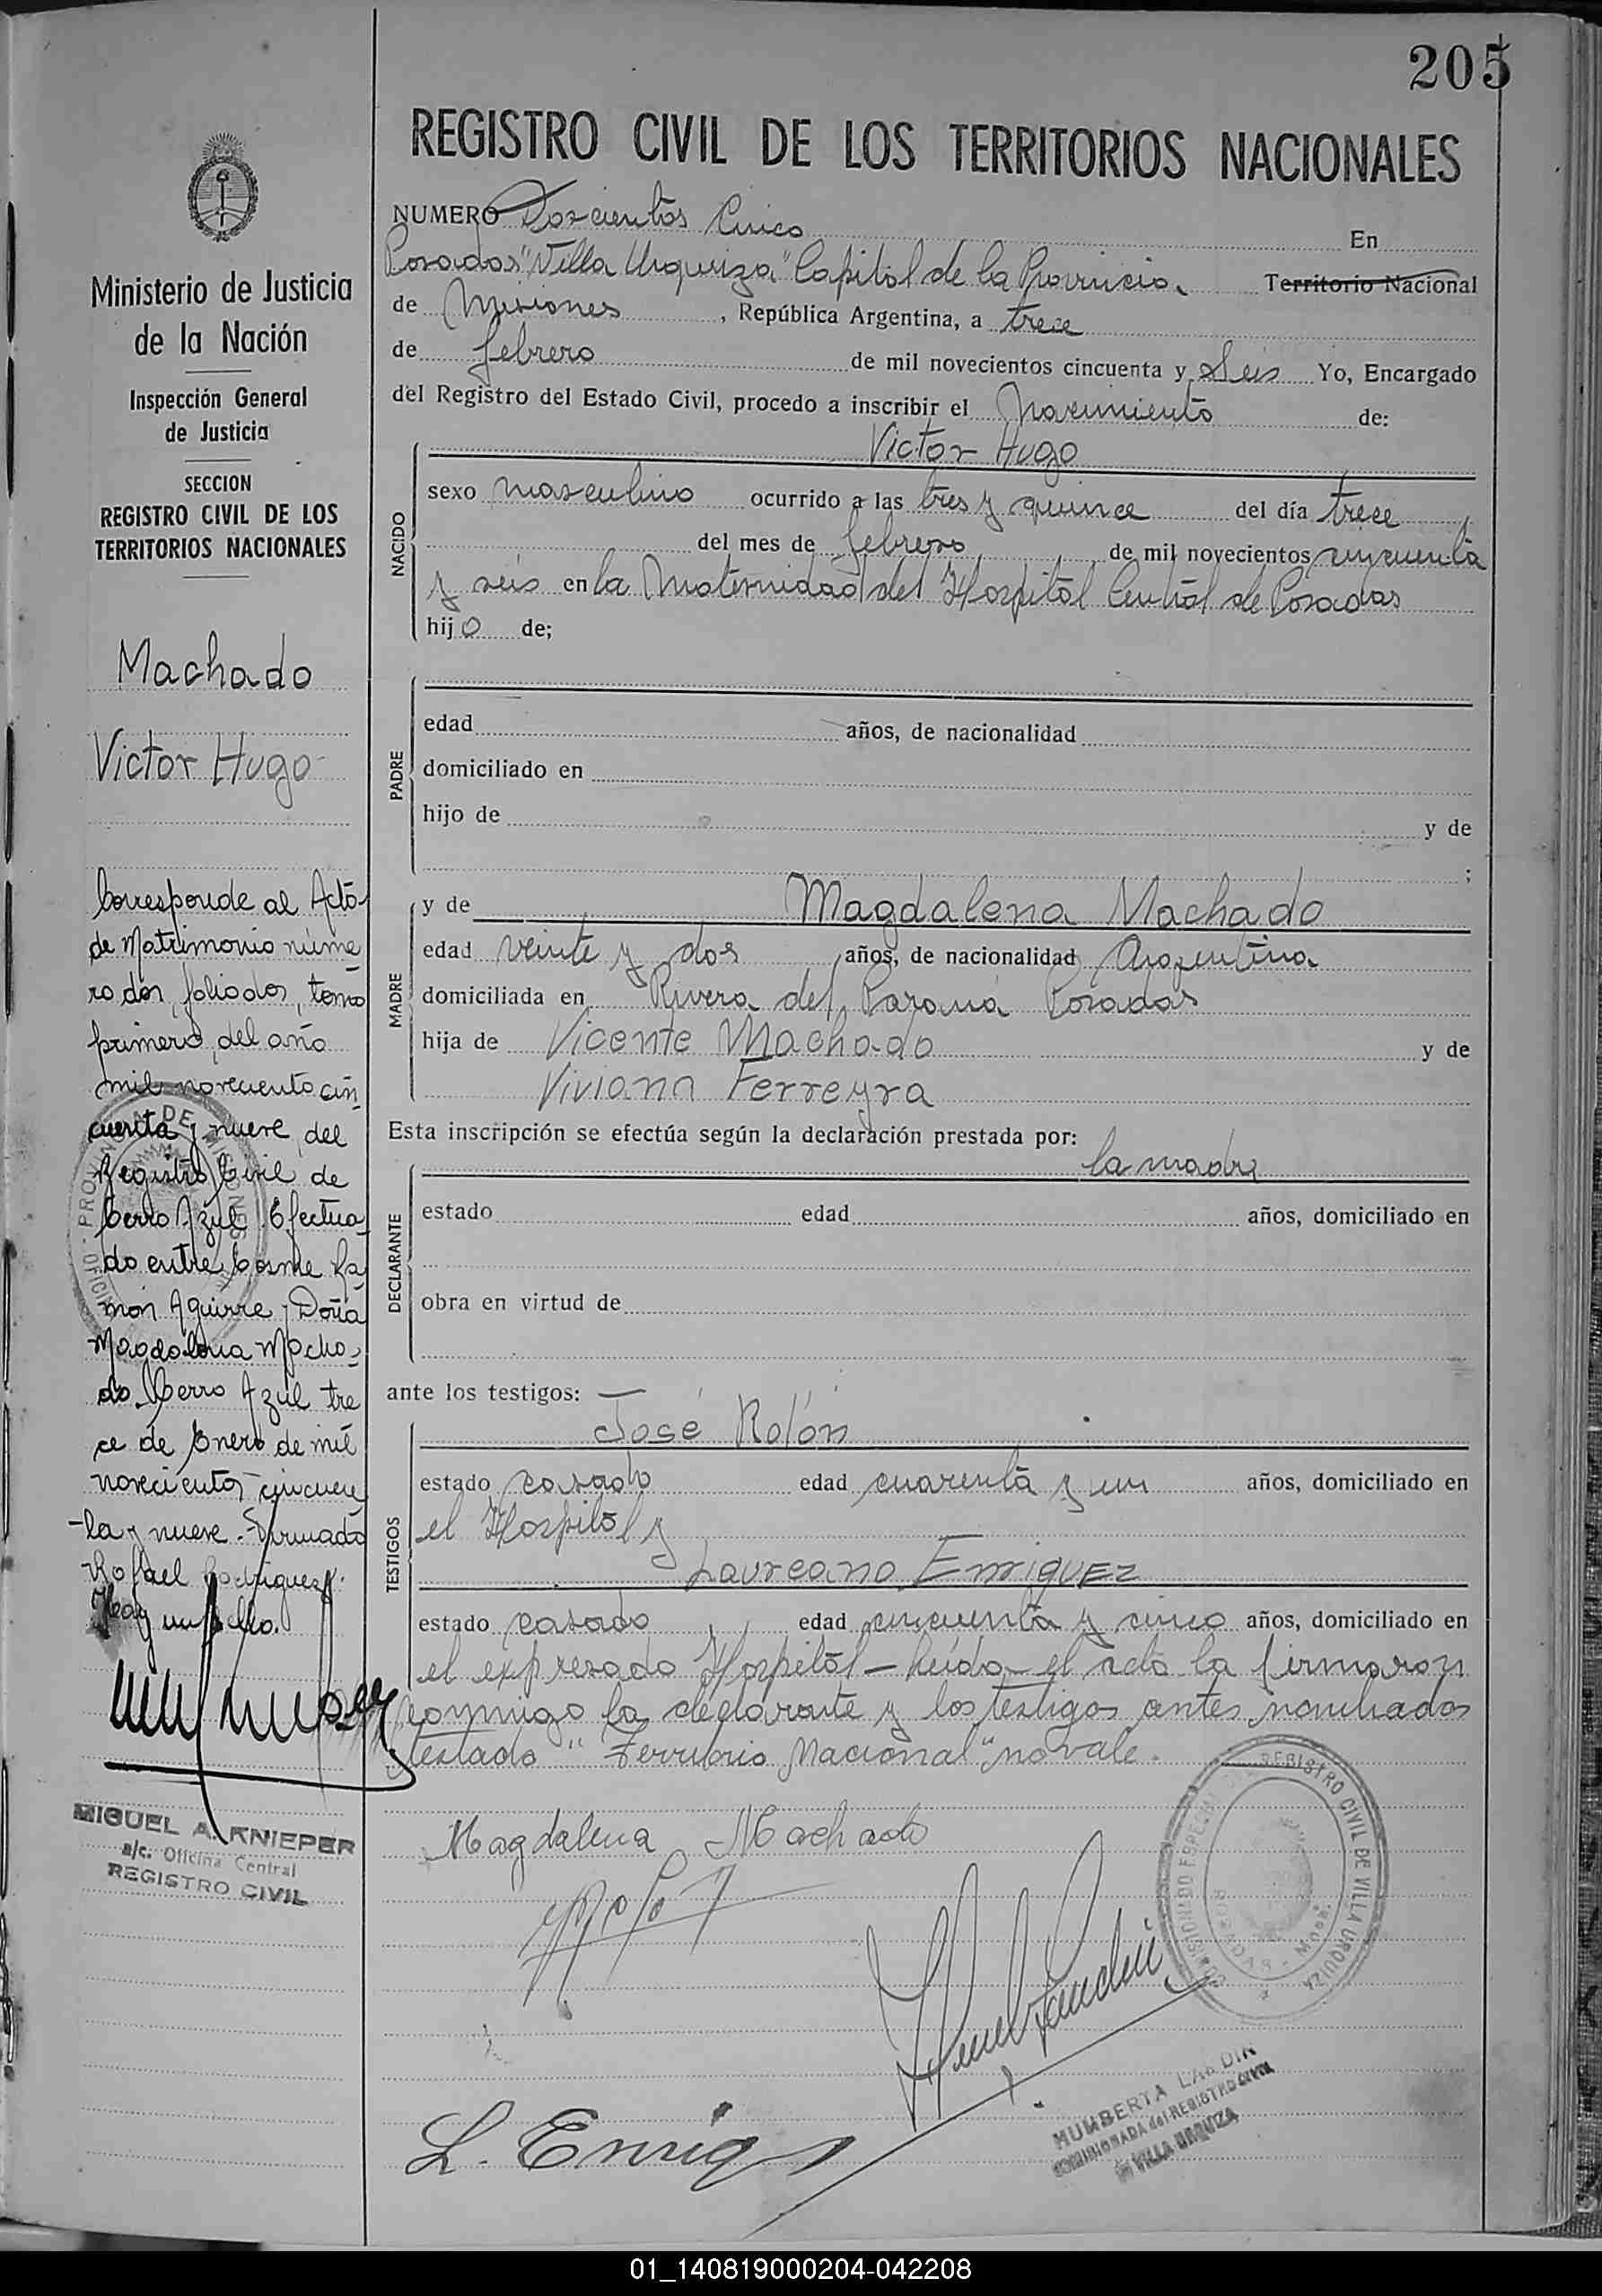 205
REGISTRO CIVIL DE LOS TERRITORIOS NACIONALES
NUMERO Doscientos Cinco En
Posadas "Villa Urquiza" Capital de la Provincia Territorio Nacional
de Misiones, República Argentina, a trece
de febrero de mil novecientos cincuenta y Seis Yo, Encargado
del Registro del Estado Civil, procedo a inscribir el Nacimiento de:
NACIDO
Victor Hugo
sexo masculino ocurrido a las tres y quince del día trece
del mes de febrero de mil novecientos cincuenta
y seis en la Maternidad del Hospital Central de Posadas
hijo de;
PADRE
edad años, de nacionalidad
domiciliado en
hijo de y de
;
MADRE
y de Magdalena Machado
edad veinte y dos años, de nacionalidad Argentina
domiciliada en Rivera del Paraná Posadas
hija de Vicente Machado y de
Viviana Ferreyra
Esta inscripción se efectúa según la declaración prestada por:
DECLARANTE
la madre
estado edad años, domiciliado en
obra en virtud de
ante los testigos:
TESTIGOS
José Rolón
estado casado edad cuarenta y un años, domiciliado en
el Hospital y
Laureano Enriquez
estado casado edad cincuenta y cinco años, domiciliado en
el expresado Hospital - Leída el acta la firmaron
conmigo la declarante y los testigos antes nombrados
testado "Territorio Nacional" no vale.
Magdalena Machado
L. Enriq
REGISTRO CIVIL DE VILLA URQUIZA
POSADAS - Mnes.
HUMBERTA
COMISIONADA del REGISTRO CIVIL
de VILLA URQUIZA
Ministerio de Justicia
de la Nación
Inspección General
de Justicia
SECCION
REGISTRO CIVIL DE LOS
TERRITORIOS NACIONALES
Machado
Victor Hugo
Corresponde al Acta
de Matrimonio núme
ro dos, folio dos, tomo
primero, del año
mil novecientos cin
cuenta y nueve, del
Registro Civil de
Cerro Azul. Efectua
do entre Cosme Ra
món Aguirre y Doña
Magdalena Macha
do. Cerro Azul tre
ce de Enero de mil
novecientos cincuen
ta y nueve. Firmado
Rafael Rodriguez.
Hay un sello.
MIGUEL A. KNIEPER
a/c. Oficina Central
REGISTRO CIVIL
01_140819000204-042208